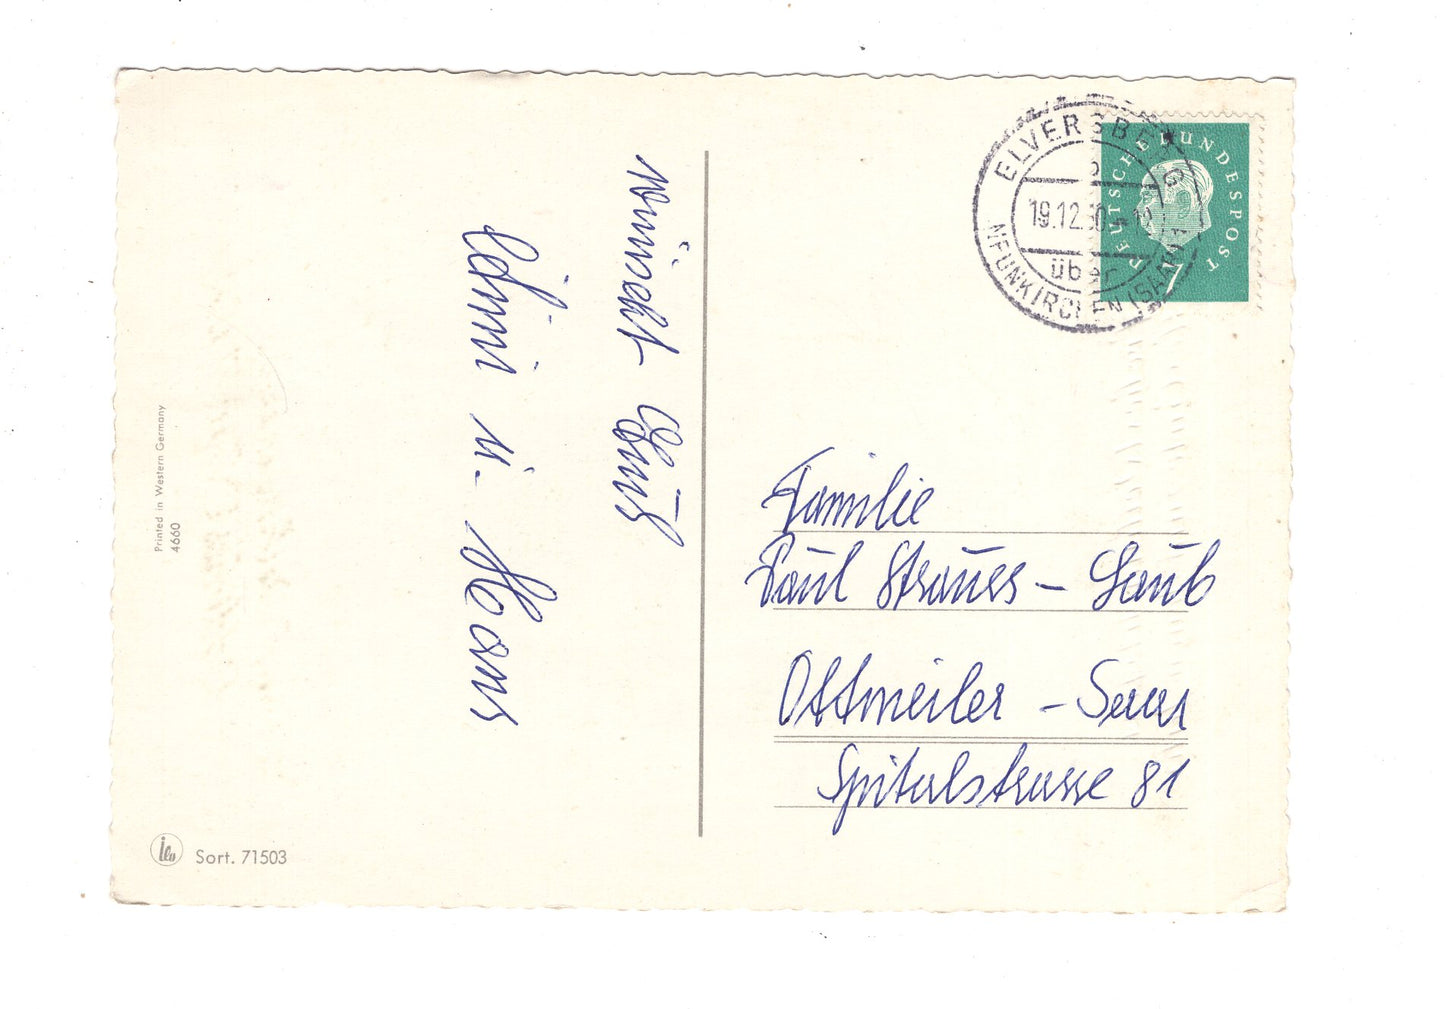 wünscht Euch
Anni u. Hans
Printed in Western Germany
4660
Sort. 71503
DEUTSCHE BUNDESPOST
7
ELVERSBERG
b
19.12.60
über
NEUNKIRCHEN (SAAR)
Familie
Paul Strauss – Laub
Ottweiler – Saar
Spitalstrasse 81